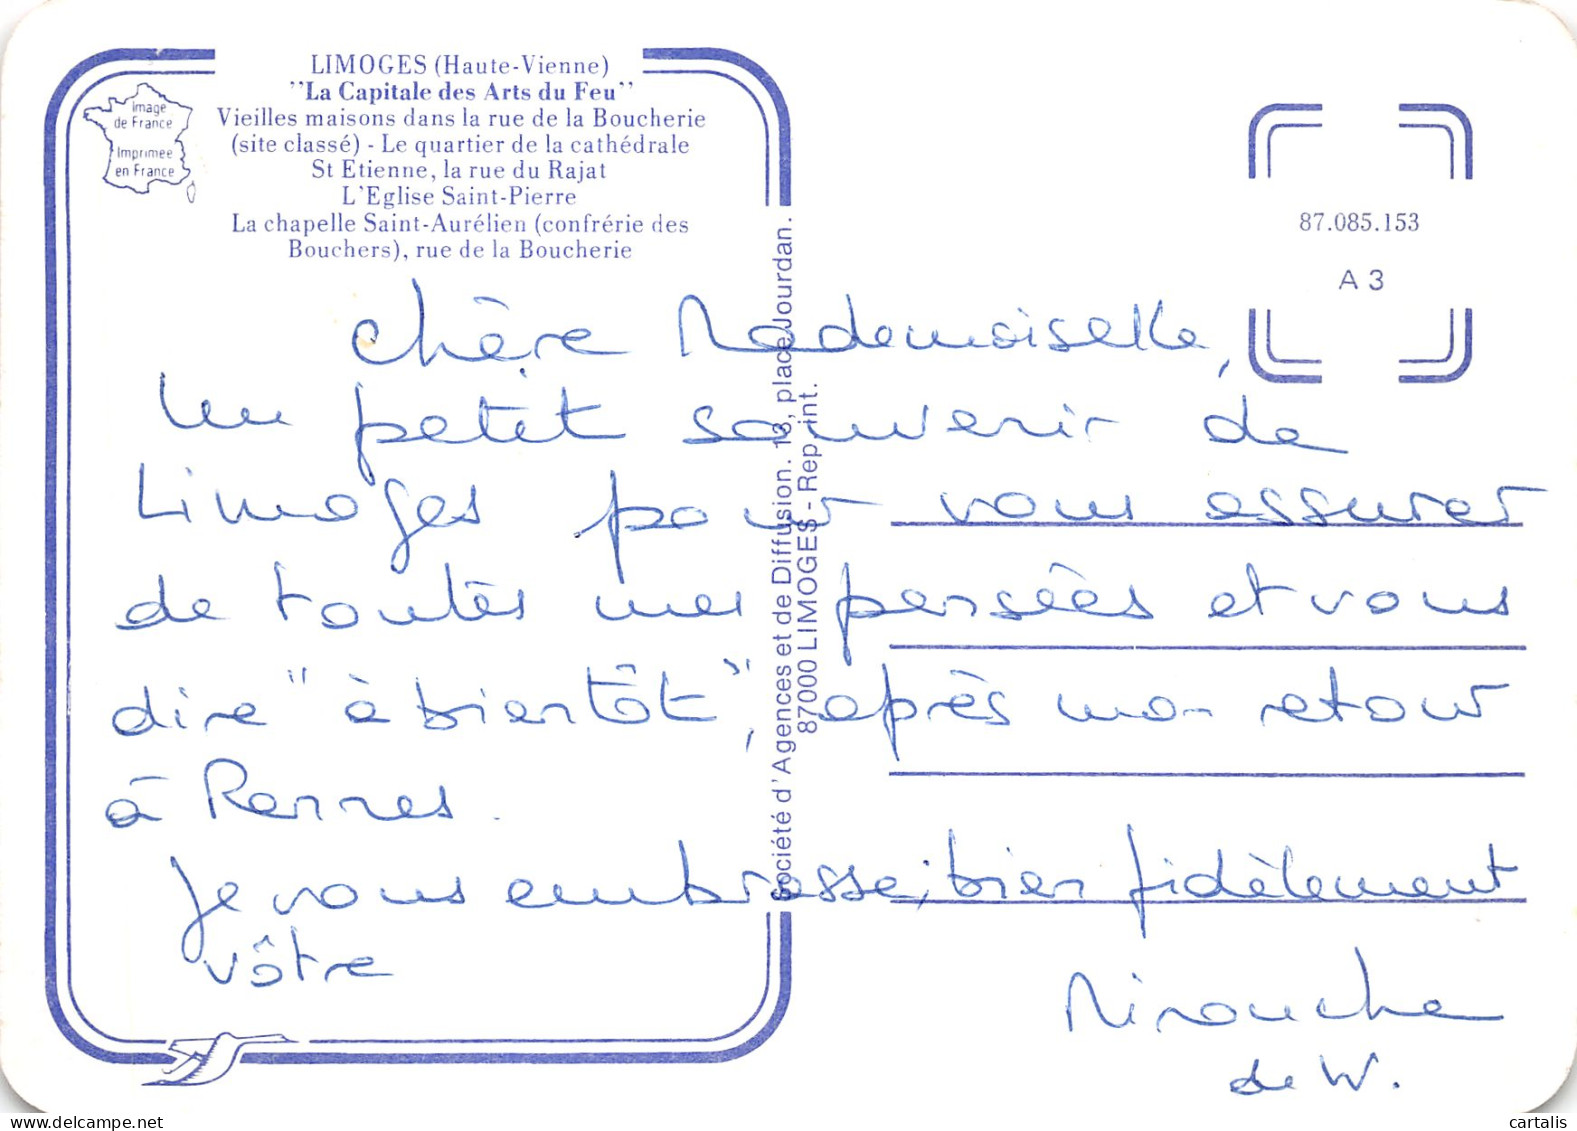 LIMOGES (Haute-Vienne)
"La Capitale des Arts du Feu"
Vieilles maisons dans la rue de la Boucherie
(site classé) - Le quartier de la cathédrale
St Etienne, la rue du Rajat
L'Eglise Saint-Pierre
La chapelle Saint-Aurélien (confrérie des
Bouchers), rue de la Boucherie
Image
de France
Imprimée
en France
87.085.153
A 3
Société d'Agences et de Diffusion. 13, place Jourdan.
87000 LIMOGES - Rep. int.
Chère Mademoiselle,
Un petit souvenir de
Limoges pour vous assurer
de toutes mes pensées et vous
dire "à bientôt", après mon retour
à Rennes.
Je vous embrasse, bien fidèlement
vôtre
Minouche
de W.
delcampe.net
cartalis